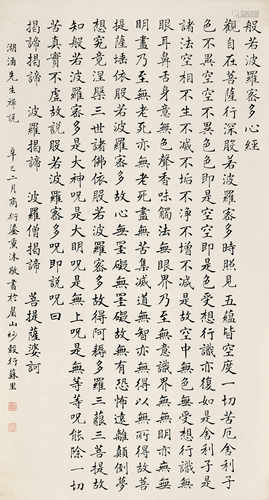 般若波羅蜜多心經
觀自在菩薩行深般若波羅蜜多時照見五蘊皆空度一切苦厄舍利子
色不異空空不異色色即是空空即是色受想行識亦復如是舍利子是
諸法空相不生不滅不垢不淨不增不減是故空中無色無受想行識無
眼耳鼻舌身意無色聲香味觸法無眼界乃至無意識界無無明亦無無
明盡乃至無老死亦無老死盡無苦集滅道無智亦無得以無所得故菩
提薩埵依般若波羅蜜多故心無罣礙無罣礙故無有恐怖遠離顛倒夢
想究竟涅槃三世諸佛依般若波羅蜜多故得阿耨多羅三藐三菩提故
知般若波羅蜜多是大神咒是大明咒是無上咒是無等等咒能除一切
苦真實不虛故說般若波羅蜜多咒即說咒曰
揭諦揭諦 波羅揭諦 波羅僧揭諦 菩提薩婆訶
先生禪說 辛巳二月商衍鎏熏沐敬書於眉山紗縠行蘇里